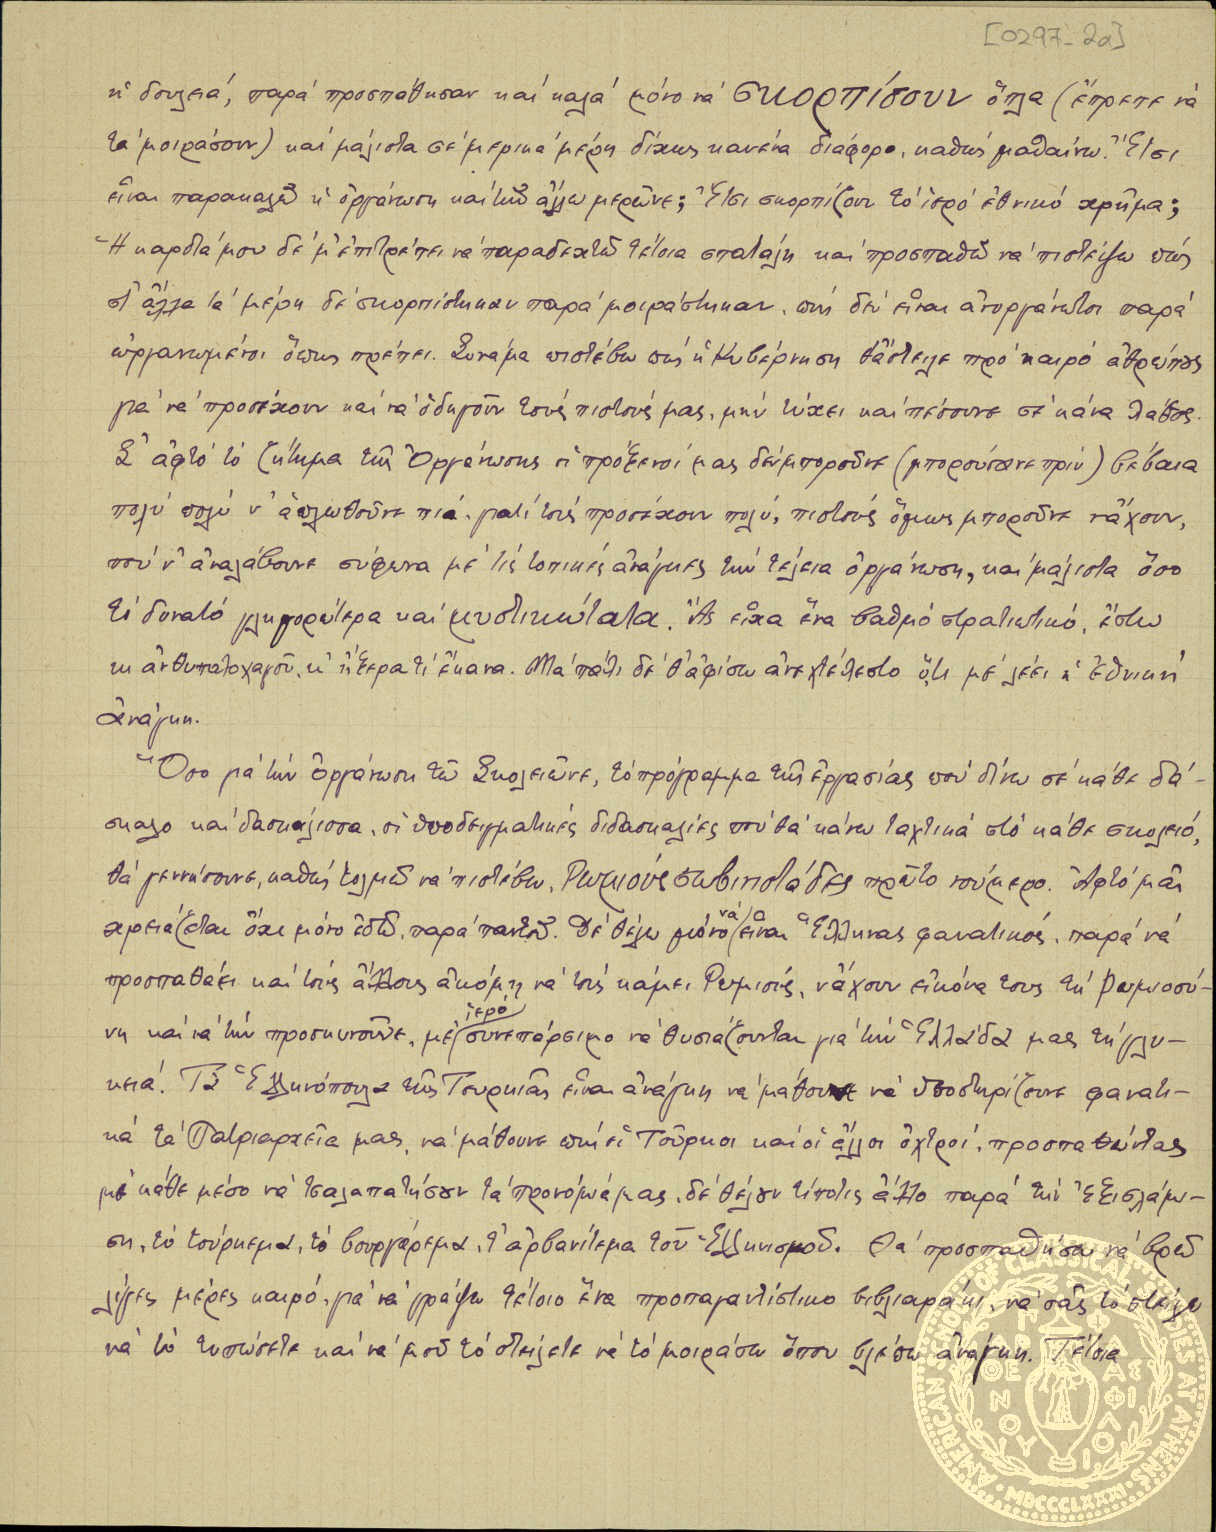 [0297-2α]
ἡ δουλειά, παρά προσπάθησαν καί καλά μόνο νά σκορπίσουν ὅπλα (ἔπρεπε νά
τά μοιράσουν) καί μάλιστα σέ μερικά μέρη δίχως κανένα διάφορο, καθώς μαθαίνω. Ἔτσι
εἶναι παρακαλῶ ἡ ὀργάνωση καί τῶ ἄλλω μερῶνε; Ἔτσι σκορπίζουν τό ἱερό ἐθνικό χρῆμα;
Ἡ καρδιά μου δέ μ' ἐπιτρέπει νά παραδεχτῶ τέτοια σπατάλη καί προσπαθῶ νά πιστέψω πώς
σ' ἄλλα τά μέρη δέ σκορπίστηκαν παρά μοιράστηκαν, πώς δέν εἶναι ἀνοργάνωτοι παρά
ὠργανωμένοι ὅπως πρέπει. Συνάμα πιστέβω πώς ἡ Κυβέρνηση θἄστειλε πρό καιρό ἀθρώπους
γιά νά προσέχουν καί νά ὁδηγοῦν τούς πιστούς μας, μήν τύχει καί πέσουνε σέ κάνα λάθος.
Σ' ἀφτό τό ζήτημα τῆς Ὀργάνωσης οἱ πρόξενοί μας δέν μποροῦνε (μπορούσανε πρίν) βέβαια
πολύ πολύ ν' ἁπλωθοῦνε πιά, γιατί τούς προσέχουν πολύ, πιστούς ὅμως μποροῦνε νἄχουν,
πού ν' ἀναλάβουνε σύφωνα μέ τίς τοπικές ἀνάγκες τήν τέλεια ὀργάνωση, καί μάλιστα ὅσο
τό δυνατό γληγορώτερα καί μυστικώτατα. Ἄς εἶχα ἕνα βαθμό στρατιωτικό, ἔστω
κι ἀνθυπολοχαγοῦ, κ' ἤξερα τί ἔκανα. Μά πάλι δέ θ' ἀφίσω ἀνεχτέλεστο ὅ,τι μέ λέει ἡ ἐθνική
ἀνάγκη.
Ὅσο γιά τήν ὀργάνωση τῶ Σκολειῶνε, τό πρόγραμμα τῆς ἐργασίας πού δίνω σέ κάθε δά-
σκαλο καί δασκάλισσα, οἱ ὑποδειγματικές διδασκαλίες πού θά κάνω ταχτικά στό κάθε σκολειό,
θά γεννήσουνε, καθώς τολμῶ νά πιστέβω, Ρωμιούς σωβινιστάδες πρῶτο νούμερο. Ἀφτό μᾶς
χρειάζεται ὄχι μόνο ἐδῶ, παρά παντοῦ. Δέ θέλω μόνο νά εἶναι ὁ Ἕλληνας φανατικός, παρά νά
προσπαθάει καί τούς ἄλλους ἀκόμη νά τούς κάμει Ρωμιούς, νἄχουν εἰκόνα τους τή Ρωμιοσύ-
νη καί νά τήν προσκυνοῦνε, μέ ἱερό συνεπάρσιμο νά θυσιάζουνται γιά τήν Ἑλλάδα μας τή γλυ-
κειά. Τά Ἑλληνόπουλα τῆς Τουρκιᾶς εἶναι ἀνάγκη νά μάθουνε νά ὑποστηρίζουνε φανατι-
κά τά Πατριαρχεῖα μας, νά μάθουνε πώς οἱ Τοῦρκοι καί οἱ ἄλλοι ὀχτροί, προσπαθώντας
μέ κάθε μέσο νά τσαλαπατήσουν τά προνόμιά μας, δέ θέλουν τίποτις ἄλλο παρά τήν ἐξισλάμω-
ση, τό τούρκεμα, τό βουργάρεμα, τ' ἀρβανίτεμα τοῦ Ἑλληνισμοῦ. Θά προσπαθήσω νά βρῶ
λίγες μέρες καιρό, γιά νά γράψω τέτοιο ἕνα προπαγαντίστικο βιβλιαράκι, νά σᾶς τό στείλω
νά τό τυπώσετε καί νά μοῦ τό στείλετε νά τό μοιράσω ὅπου βλέπω ἀνάγκη. Τέτοια
AMERICAN SCHOOL OF CLASSICAL STUDIES AT ATHENS
MDCCCLXXXI